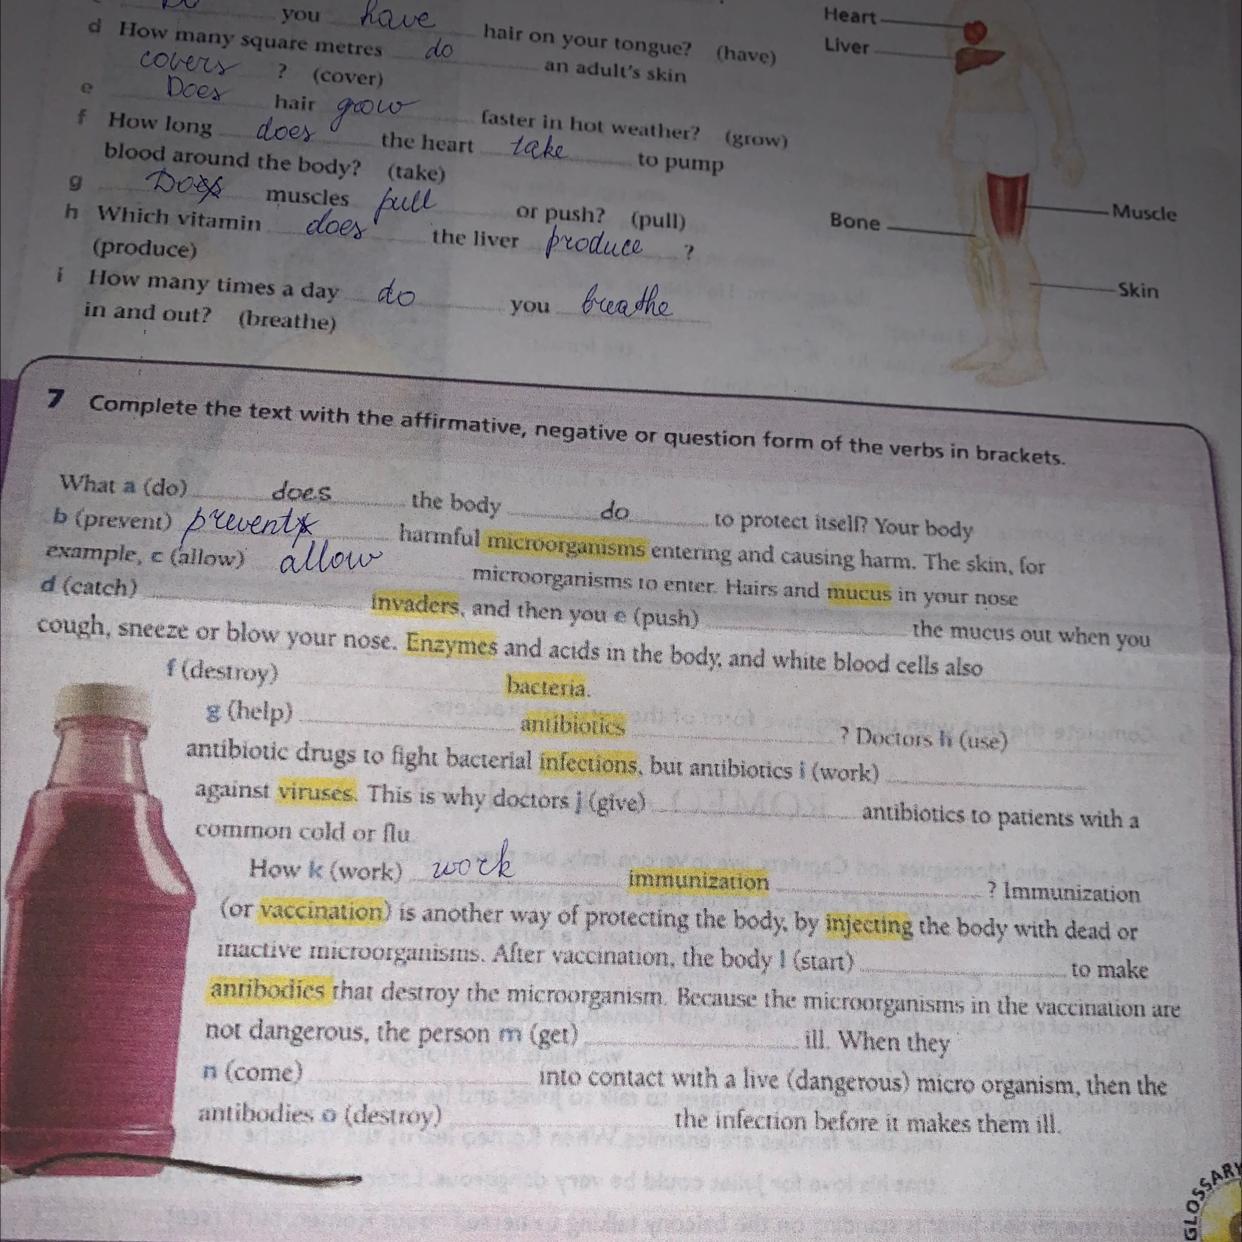 you have hair on your tongue? (have)
d How many square metres do an adult's skin
covers ? (cover)
e Does hair grow faster in hot weather? (grow)
f How long does the heart take to pump
blood around the body? (take)
g Does muscles pull or push? (pull)
h Which vitamin does the liver produce ?
(produce)
i How many times a day do you breathe
in and out? (breathe)
Heart
Liver
Bone
Muscle
Skin
7 Complete the text with the affirmative, negative or question form of the verbs in brackets.
What a (do) does the body do to protect itself? Your body
b (prevent) prevents harmful microorganisms entering and causing harm. The skin, for
example, c (allow) allow microorganisms to enter. Hairs and mucus in your nose
d (catch) invaders, and then you e (push) the mucus out when you
cough, sneeze or blow your nose. Enzymes and acids in the body, and white blood cells also
f (destroy) bacteria.
g (help) antibiotics ? Doctors h (use)
antibiotic drugs to fight bacterial infections, but antibiotics i (work)
against viruses. This is why doctors j (give) antibiotics to patients with a
common cold or flu.
How k (work) work immunization ? Immunization
(or vaccination) is another way of protecting the body, by injecting the body with dead or
inactive microorganisms. After vaccination, the body l (start) to make
antibodies that destroy the microorganism. Because the microorganisms in the vaccination are
not dangerous, the person m (get) ill. When they
n (come) into contact with a live (dangerous) micro organism, then the
antibodies o (destroy) the infection before it makes them ill.
GLOSSARY